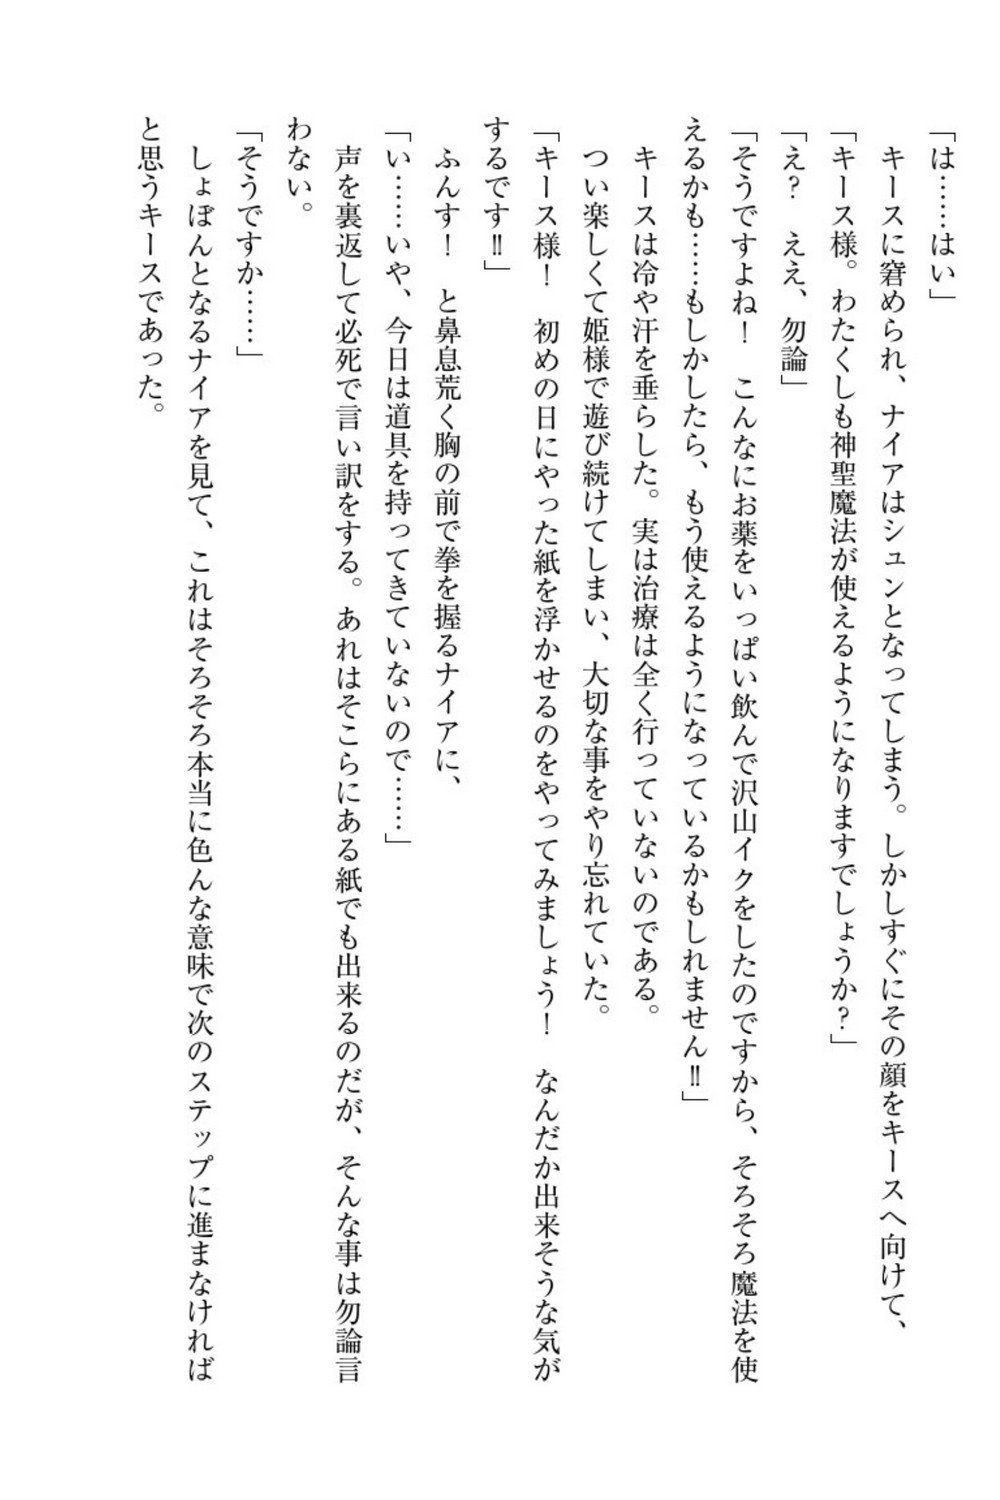 「は……はい」
　キースに窘められ、ナイアはシュンとなってしまう。しかしすぐにその顔をキースへ向けて、
「キース様。わたくしも神聖魔法が使えるようになりますでしょうか？」
「え？　ええ、勿論」
「そうですよね！　こんなにお薬をいっぱい飲んで沢山イクをしたのですから、そろそろ魔法を使
えるかも……もしかしたら、もう使えるようになっているかもしれません‼」
　キースは冷や汗を垂らした。実は治療は全く行っていないのである。
　つい楽しくて姫様で遊び続けてしまい、大切な事をやり忘れていた。
「キース様！　初めの日にやった紙を浮かせるのをやってみましょう！　なんだか出来そうな気が
するです‼」
　ふんす！　と鼻息荒く胸の前で拳を握るナイアに、
「い……いや、今日は道具を持ってきていないので……」
　声を裏返して必死で言い訳をする。あれはそこらにある紙でも出来るのだが、そんな事は勿論言
わない。
「そうですか……」
　しょぼんとなるナイアを見て、これはそろそろ本当に色んな意味で次のステップに進まなければ
と思うキースであった。